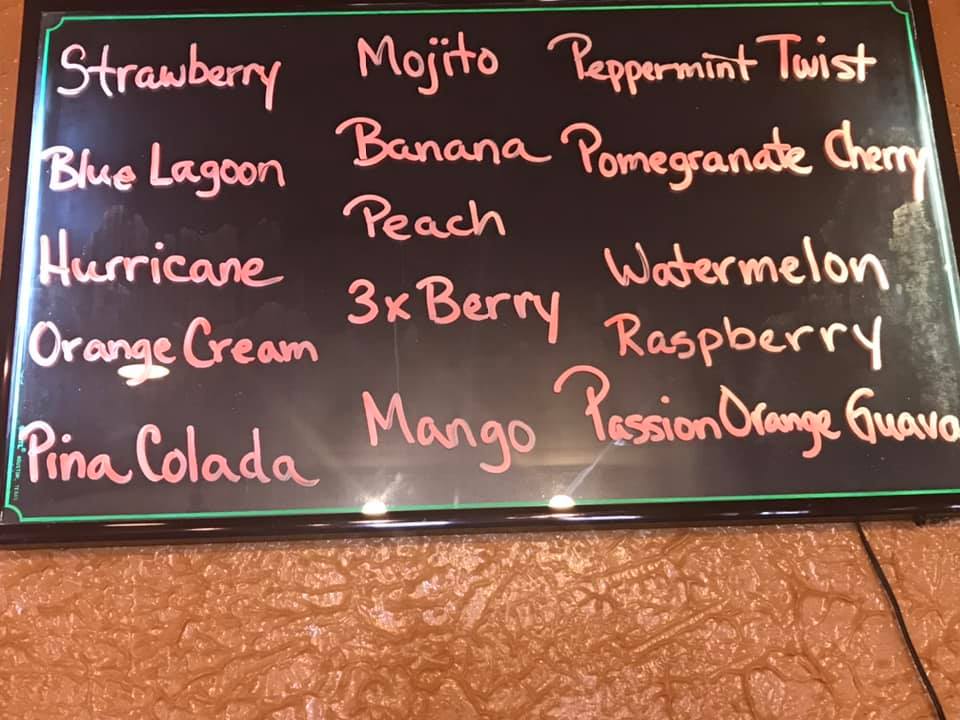 Strawberry
Blue Lagoon
Hurricane
Orange Cream
Pina Colada
Mojito
Banana
Peach
3x Berry
Mango
Peppermint Twist
Pomegranate Cherry
Watermelon
Raspberry
Passion Orange Guava